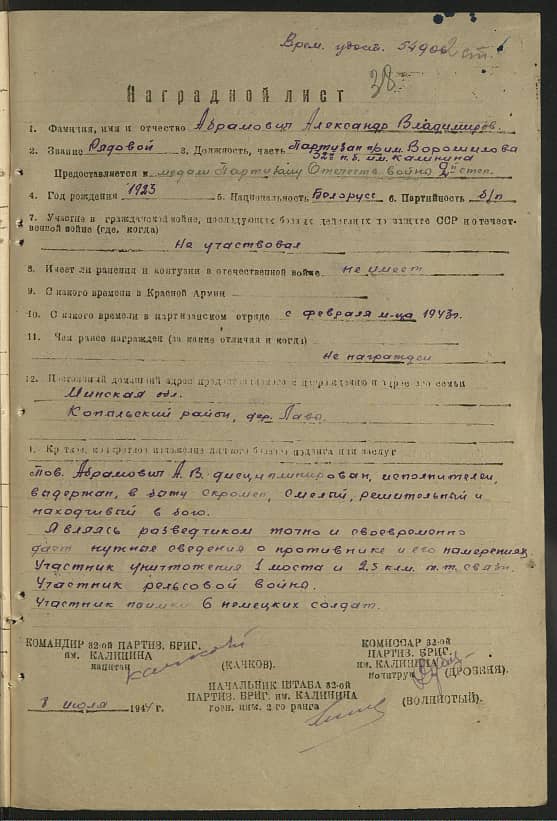 Врем. удост. 54906
2 ст.
38
Наградной лист
1. Фамилия, имя и отчество Абрамович Александр Владимиров.
2. Звание Рядовой 3. Должность, часть Партизан п/о им. Ворошилова
32й п.б. им. Калинина
Предоставляется к медали Партизану Отечеств. война 2й степ.
4. Год рождения 1923 5. Национальность Белорусс 6. Партийность б/п
7. Участие в гражданской войне, последующих боевых действиях по защите ССР и отечест-
венной войне (где, когда)
Не участвовал
8. Имеет ли ранения и контузии в отечественной войне не имеет
9. С какого времени в Красной Армии
10. С какого времени в партизанском отряде с февраля м-ца 1943г.
11. Чем ранее награжден (за какие отличия и когда)
Не награжден
12. Постоянный домашний адрес представляемого к награждению и адрес его семьи
Минская обл.
Копыльский район, дер. Лава
1. Краткое, конкретное изложение личного боевого подвига или заслуг
Тов. Абрамович А.В. дисциплинирован, исполнителен,
выдержан, в быту скромен, смелый, решительный и
находчивый в бою.
Являясь разведчиком точно и своевременно
дает нужные сведения о противнике и его намерениях.
Участник уничтожения 1 моста и 2,5 клм. т.т. связи.
Участник рельсовой война.
Участник поимки 6 немецких солдат.
КОМАНДИР 32-ой ПАРТИЗ. БРИГ.
им. КАЛИНИНА
капитан (КАЧКОВ).
КОМИССАР 32-ой
ПАРТИЗ. БРИГ.
им. КАЛИНИНА
политрук (ДРОБНЯ).
НАЧАЛЬНИК ШТАБА 32-ой
ПАРТИЗ. БРИГ. им. КАЛИНИНА
воен. инж. 2-го ранга (ВОЛНИСТЫЙ).
8 июля 1944 г.